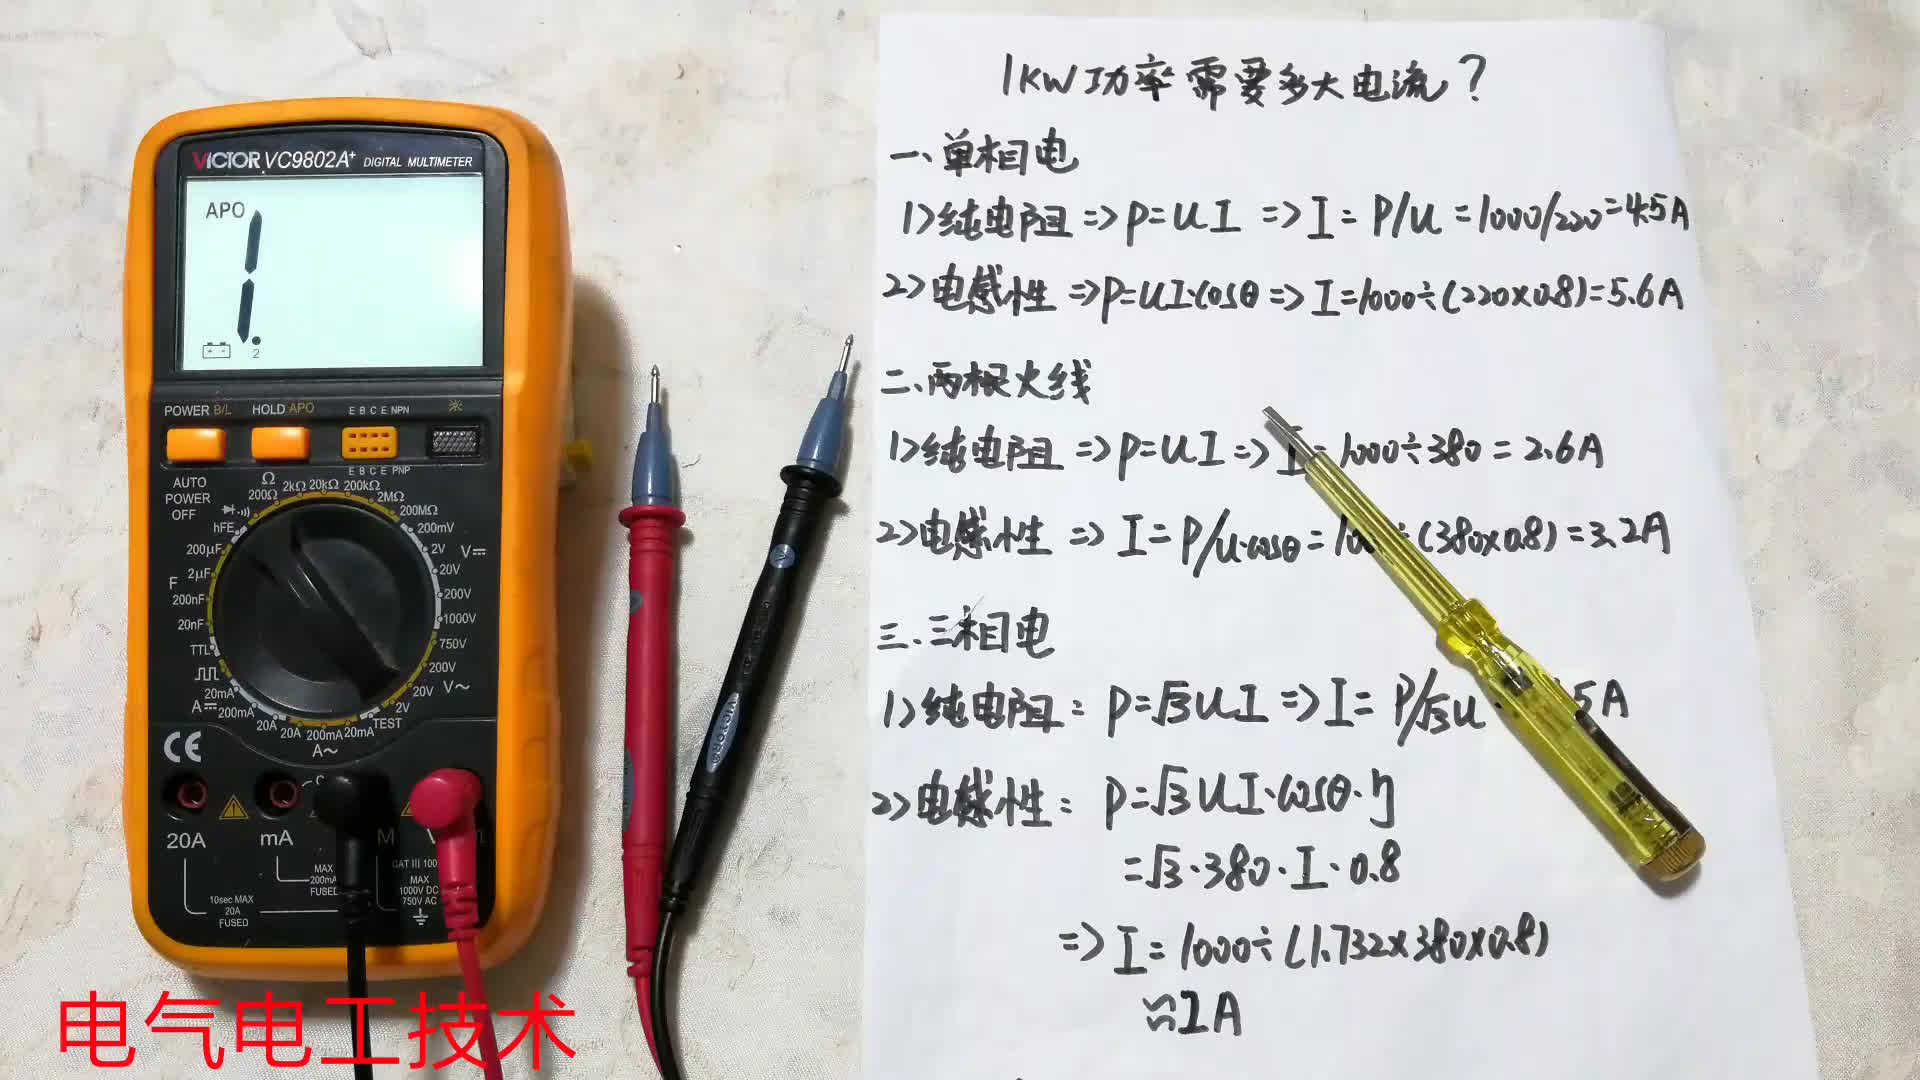 VICTOR VC9802A+ DIGITAL MULTIMETER
APO
1.
2
POWER B/L HOLD APO E B C E NPN
E B C E PNP
AUTO POWER OFF
Ω
200Ω 2kΩ 20kΩ 200kΩ 2MΩ 200MΩ
hFE
200mV
200μF
2V
V
2μF
20V
F
200nF
200V
20nF
1000V
TTL
750V
200V
V~
20mA
20V
A
200mA
2V
20A 20A 200mA 20mA TEST
A~
CE
20A mA
10sec MAX
20A
FUSED
MAX
200mA
FUSED
CAT III 100
MAX
1000V DC
750V AC
1KW功率需要多大电流?
一、单相电
1>纯电阻=>P=UI=>I=P/U=1000/220=4.5A
2>电感性=>P=UI·cosθ=>I=1000÷(220×0.8)=5.6A
二、两根火线
1>纯电阻=>P=UI=>I=1000÷380=2.6A
2>电感性=>I=P/U·cosθ=10÷(380×0.8)=3.2A
三、三相电
1>纯电阻:P=√3UI=>I=P/√3U 5A
2>电感性:P=√3UI·cosθ·η
=√3·380·I·0.8
=>I=1000÷(1.732×380×0.8)
≈2A
电气电工技术